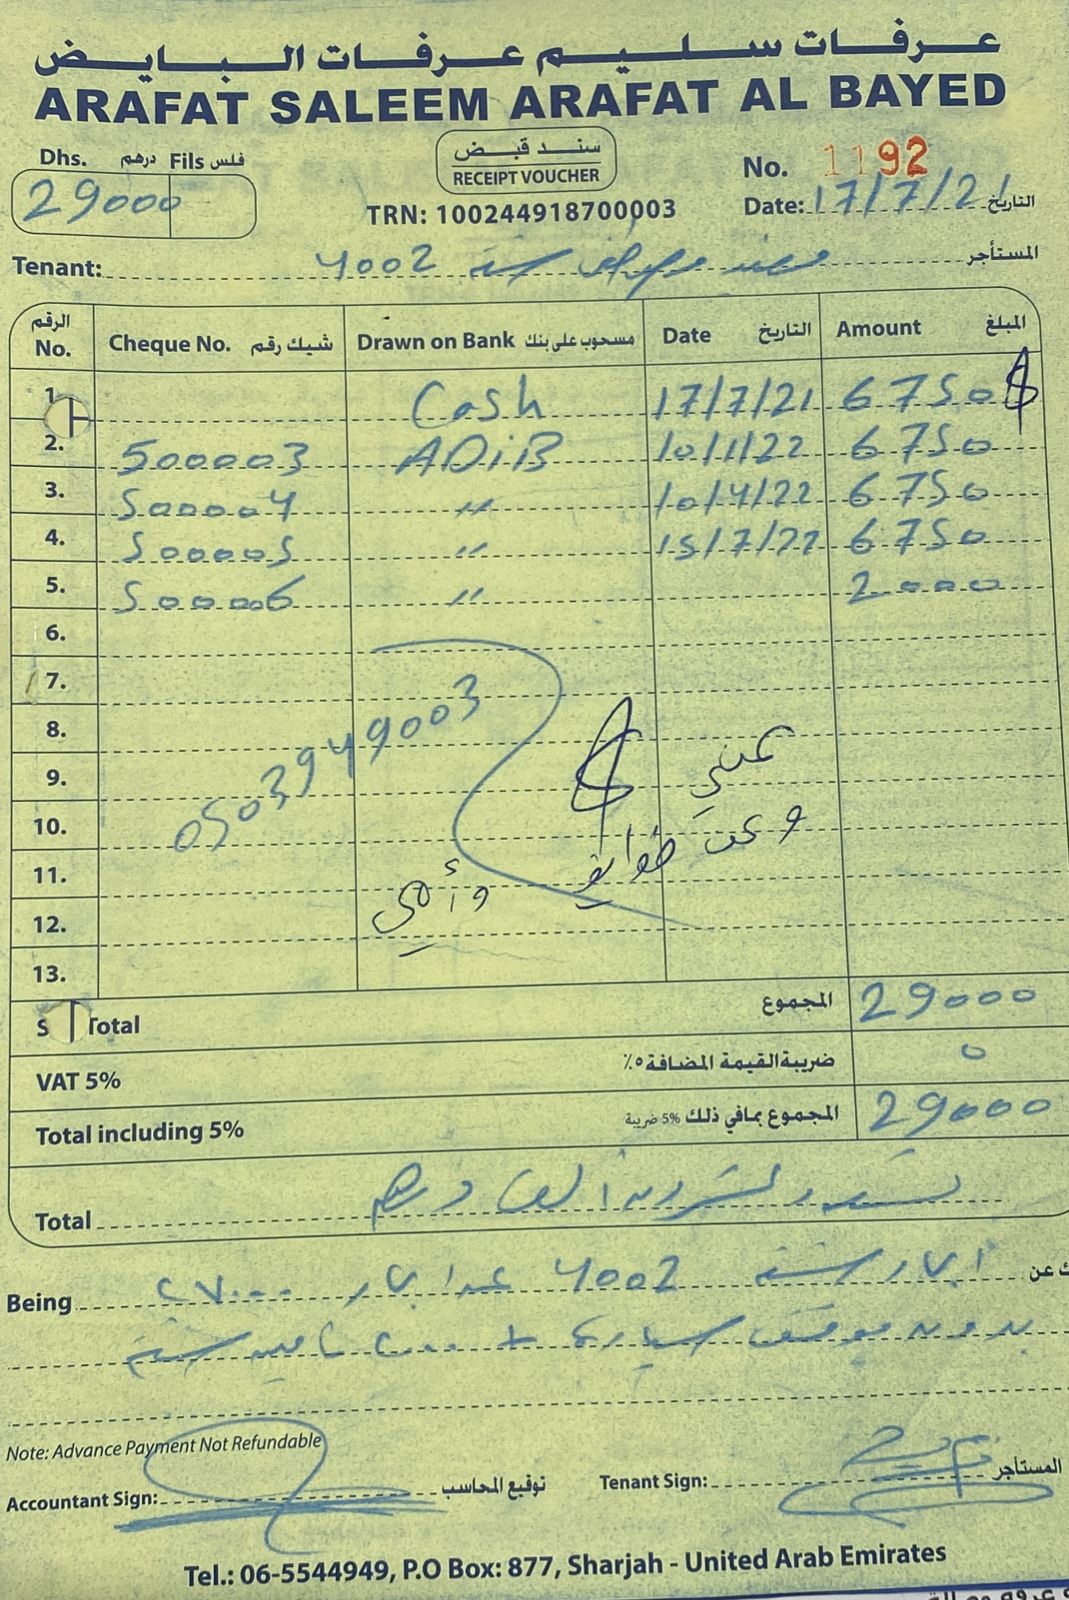 عرفات سليم عرفات البايض
ARAFAT SALEEM ARAFAT AL BAYED
Dhs. درهم Fils فلس
29000
سند قبض
RECEIPT VOUCHER
TRN: 100244918700003
No. 1192
Date: 17/7/21 التاريخ
Tenant: شقة 4002 المستأجر
الرقم No. Cheque No. شيك رقم Drawn on Bank مسحوب على بنك Date التاريخ Amount المبلغ
1. Cash 17/7/21 6750
2. 500003 ADiB 10/1/22 6750
3. 500004 " 10/4/22 6750
4. 500005 " 15/7/22 6750
5. 500006 " 2000
6.
7.
8.
9.
10.
11.
12.
13.
0503949003
S Total المجموع 29000
VAT 5% ضريبة القيمة المضافة ٥٪ 0
Total including 5% المجموع بمافي ذلك 5% ضريبة 29000
Total تسعة وعشرون ألف درهم
Being ايجار شقة 4002 عدا ايجار ٢٧٠٠٠ ك عن
بدون موقف سيارة + ٢٠٠٠ تامين شقة
Note: Advance Payment Not Refundable
Accountant Sign: توقيع المحاسب Tenant Sign: المستأجر
Tel.: 06-5544949, P.O Box: 877, Sharjah - United Arab Emirates